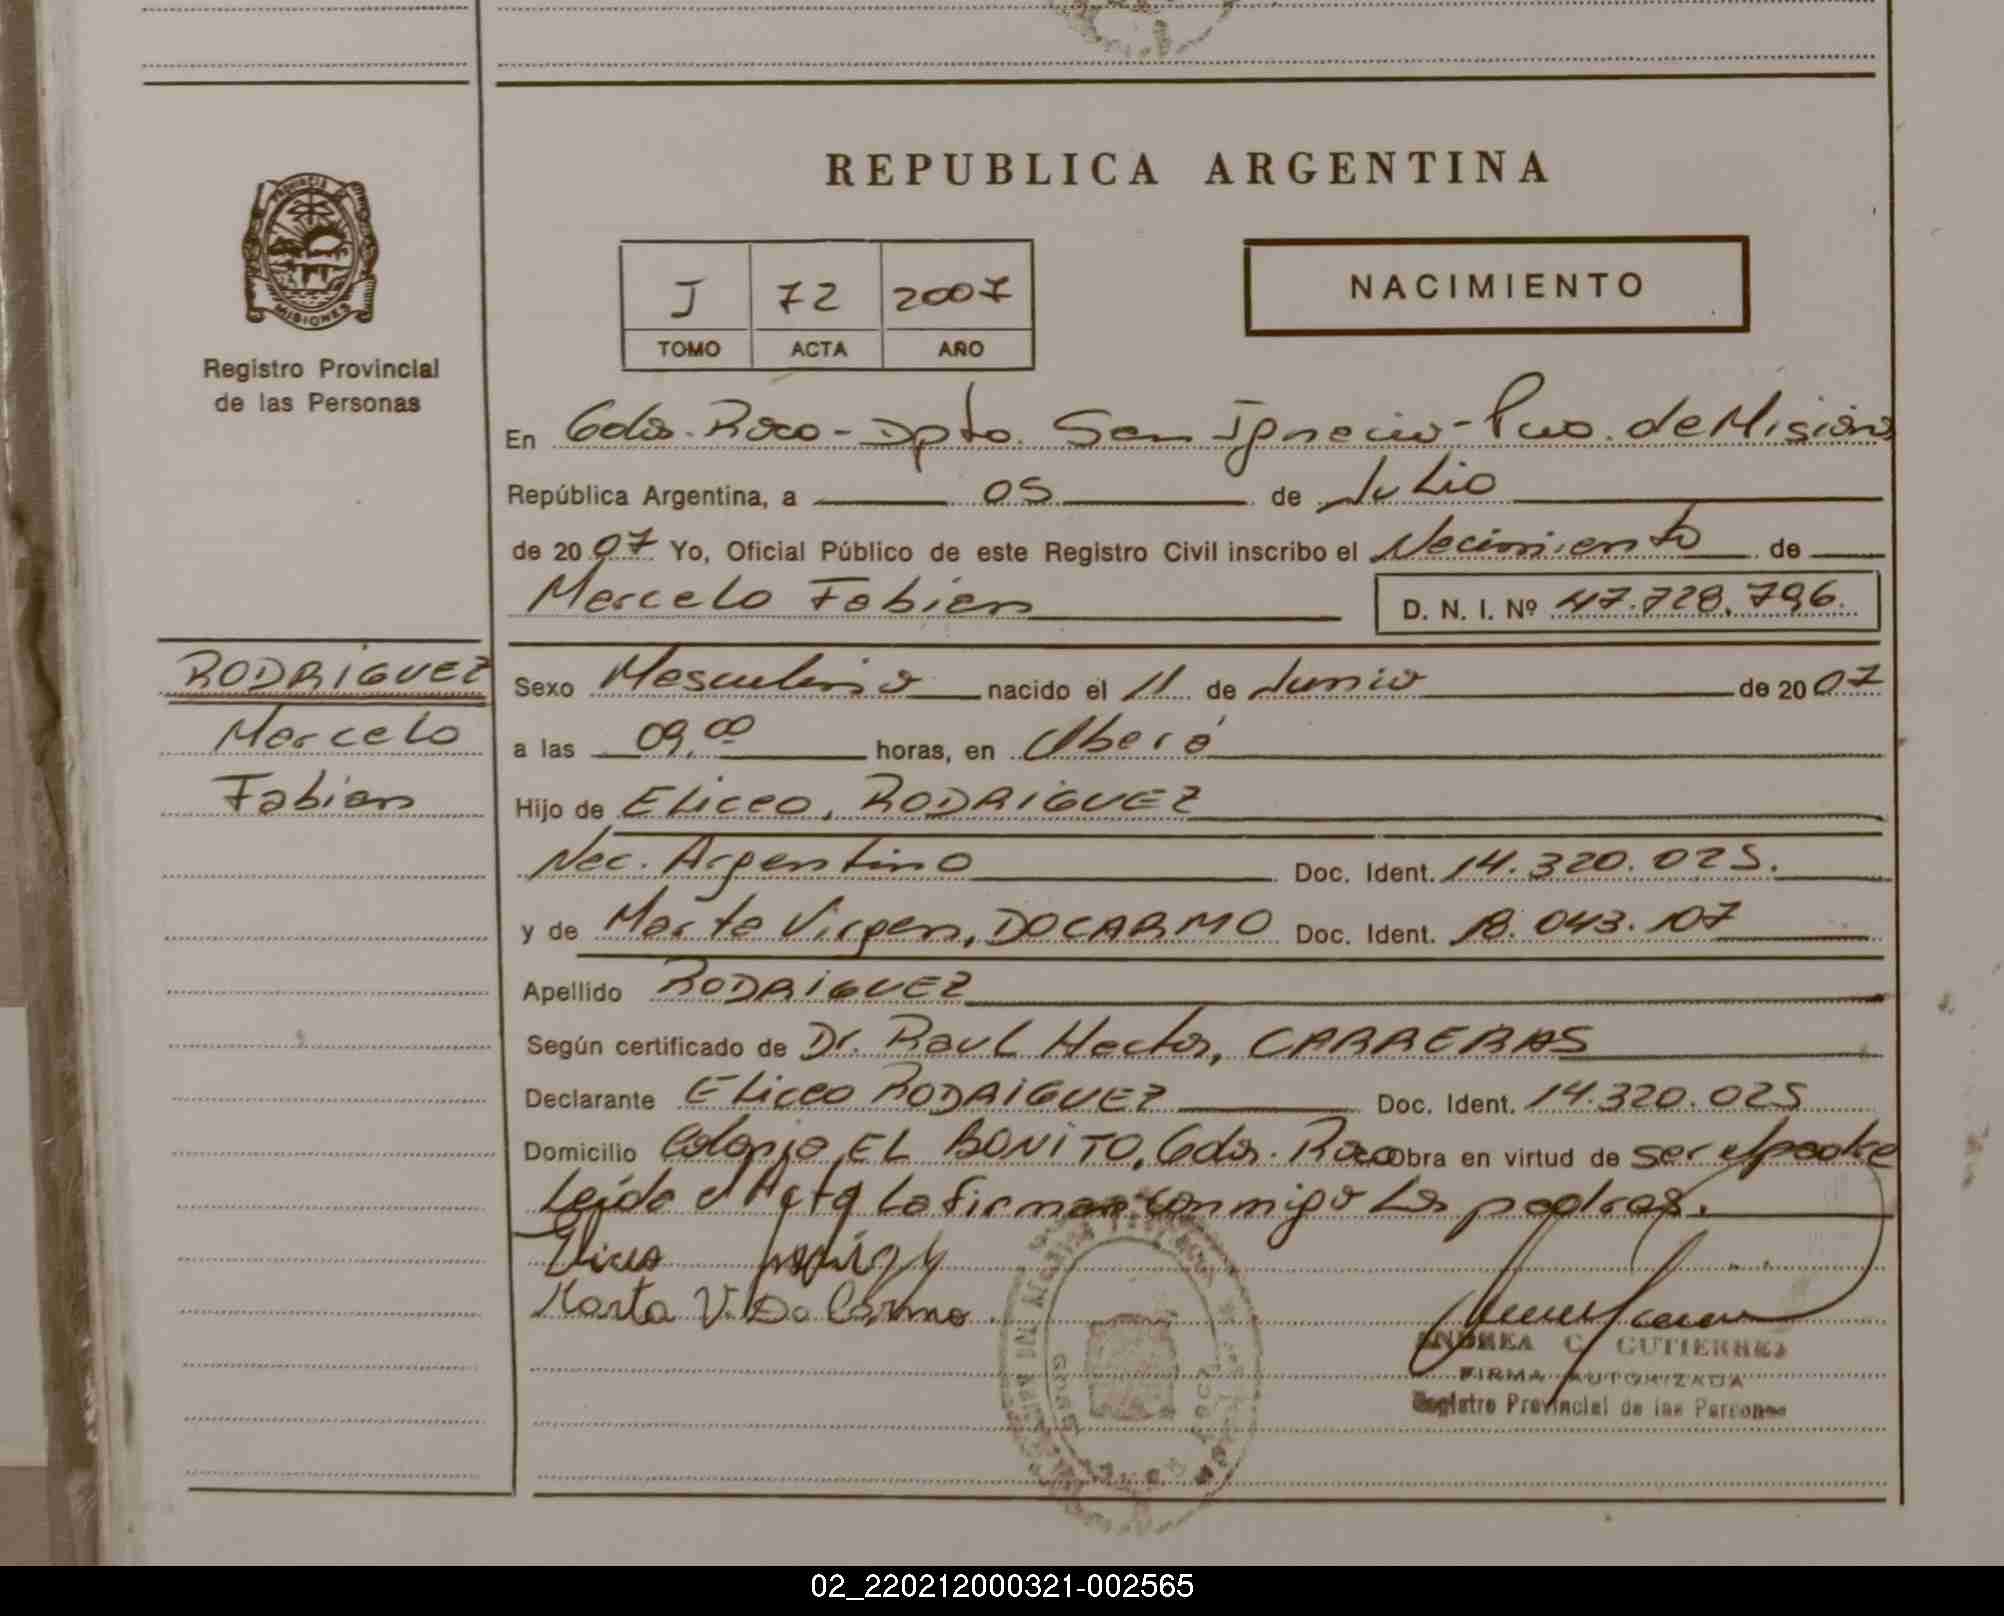 REPUBLICA ARGENTINA
PROVINCIA DE
MISIONES
Registro Provincial
de las Personas
J 72 2007
TOMO ACTA AÑO
NACIMIENTO
En Gdor. Roca - Dpto. San Ignacio - Pvo. de Misiones
República Argentina, a 05 de Julio
de 2007 Yo, Oficial Público de este Registro Civil inscribo el Nacimiento de
Marcelo Fabian D. N. I. Nº 47.728.796.
RODRIGUEZ
Marcelo
Fabian
Sexo Masculino nacido el 11 de Junio de 2007
a las 09,00 horas, en Oberá
Hijo de Eliceo, RODRIGUEZ
Nac. Argentino Doc. Ident. 14.320.025.
y de Marta Virgen, DOCARMO Doc. Ident. 18.043.107
Apellido RODRIGUEZ
Según certificado de Dr. Raul Hector, CARRERAS
Declarante Eliceo RODRIGUEZ Doc. Ident. 14.320.025
Domicilio Colonia EL BONITO, Gdor. Roca Obra en virtud de ser el padre
Leída el Acta La firman conmigo Los padres.
Eliceo
Marta V. Do Carmo
ANDREA C. GUTIERREZ
FIRMA AUTORIZADA
Registro Provincial de las Personas
02_220212000321-002565